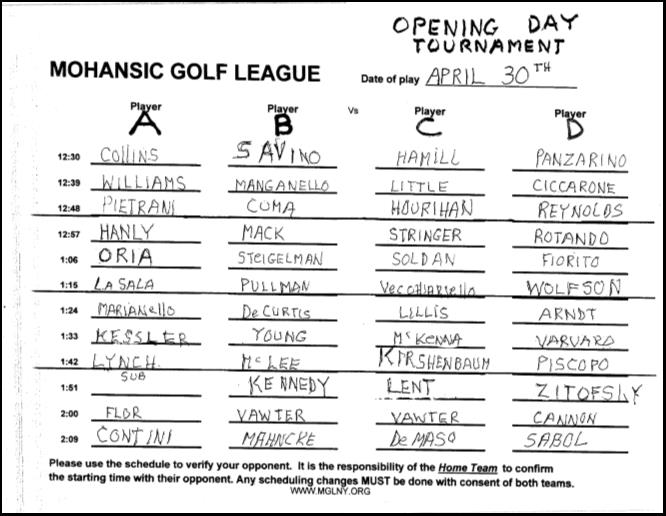 OPENING DAY
TOURNAMENT
MOHANSIC GOLF LEAGUE Date of play APRIL 30TH
Player Player Vs Player Player
A B C D
12:30 Collins SAVINO HAMILL PANZARINO
12:39 WILLIAMS MANGANELLO LITTLE CICCARONE
12:48 PIETRANI CUMA HOURIHAN REYNOLDS
12:57 HANLY MACK STRINGER ROTANDO
1:06 ORIA STEIGELMAN SOLDAN FIORITO
1:15 LA SALA PULLMAN Vecchiariello WOLFSON
1:24 MARIANello De CURTIS LILLIS ARNDT
1:33 KESSLER YOUNG McKENNA VARVARO
1:42 LYNCH McLEE KIRSHENBAUM PISCOPO
1:51 SUB KENNEDY LENT ZITOFSKY
2:00 FLOR VAWTER VAWTER CANNON
2:09 CONTINI MAHNCKE De MASO SABOL
Please use the schedule to verify your opponent. It is the responsibility of the Home Team to confirm
the starting time with their opponent. Any scheduling changes MUST be done with consent of both teams.
WWW.MGLNY.ORG